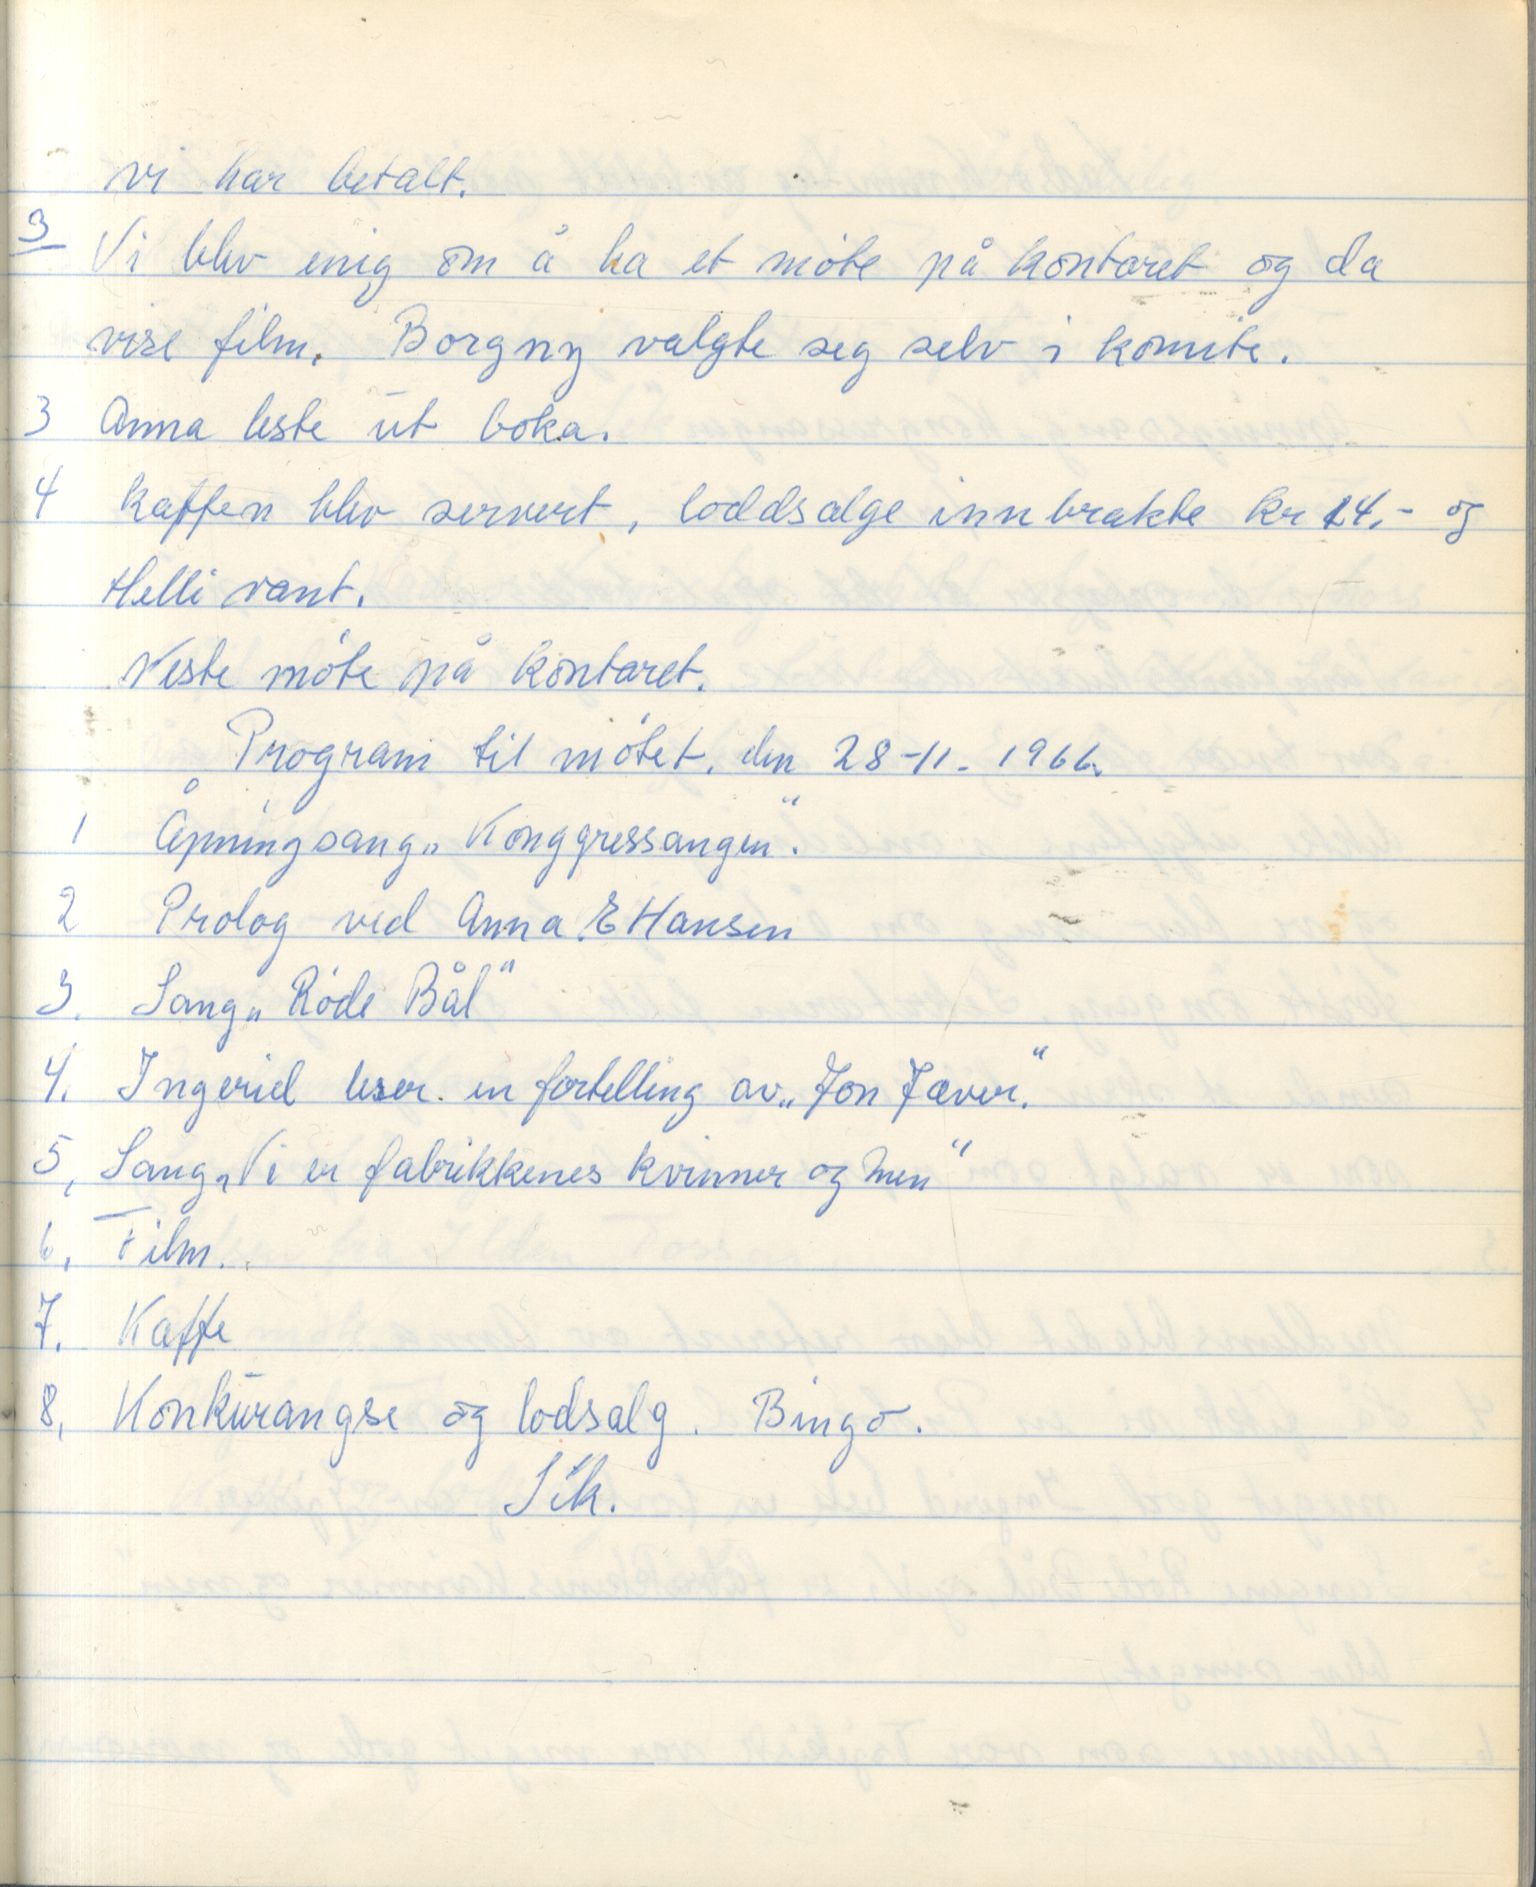 vi har betalt.
3 Vi blev enig om å ha et møte på kontoret og da
vise film. Borgny valgte seg selv i komite.
3 Anna leste ut boka.
4 kaffen blev servert, loddsalge innbrakte kr 14.- og
Helli vant.
Neste møte på kontoret.
Program til møtet. den 28-11-1966.
1 Åpningsang „Konggressangen".
2 Prolog ved Anna E Hansen
3. Sang „Røde Bål"
4. Ingerid leser en fortelling av „Jon Jæver."
5, Sang „Vi er fabrikkenes kvinner og men"
6, Film.
7. Kaffe
8, Konkurangse og lodsalg. Bingo.